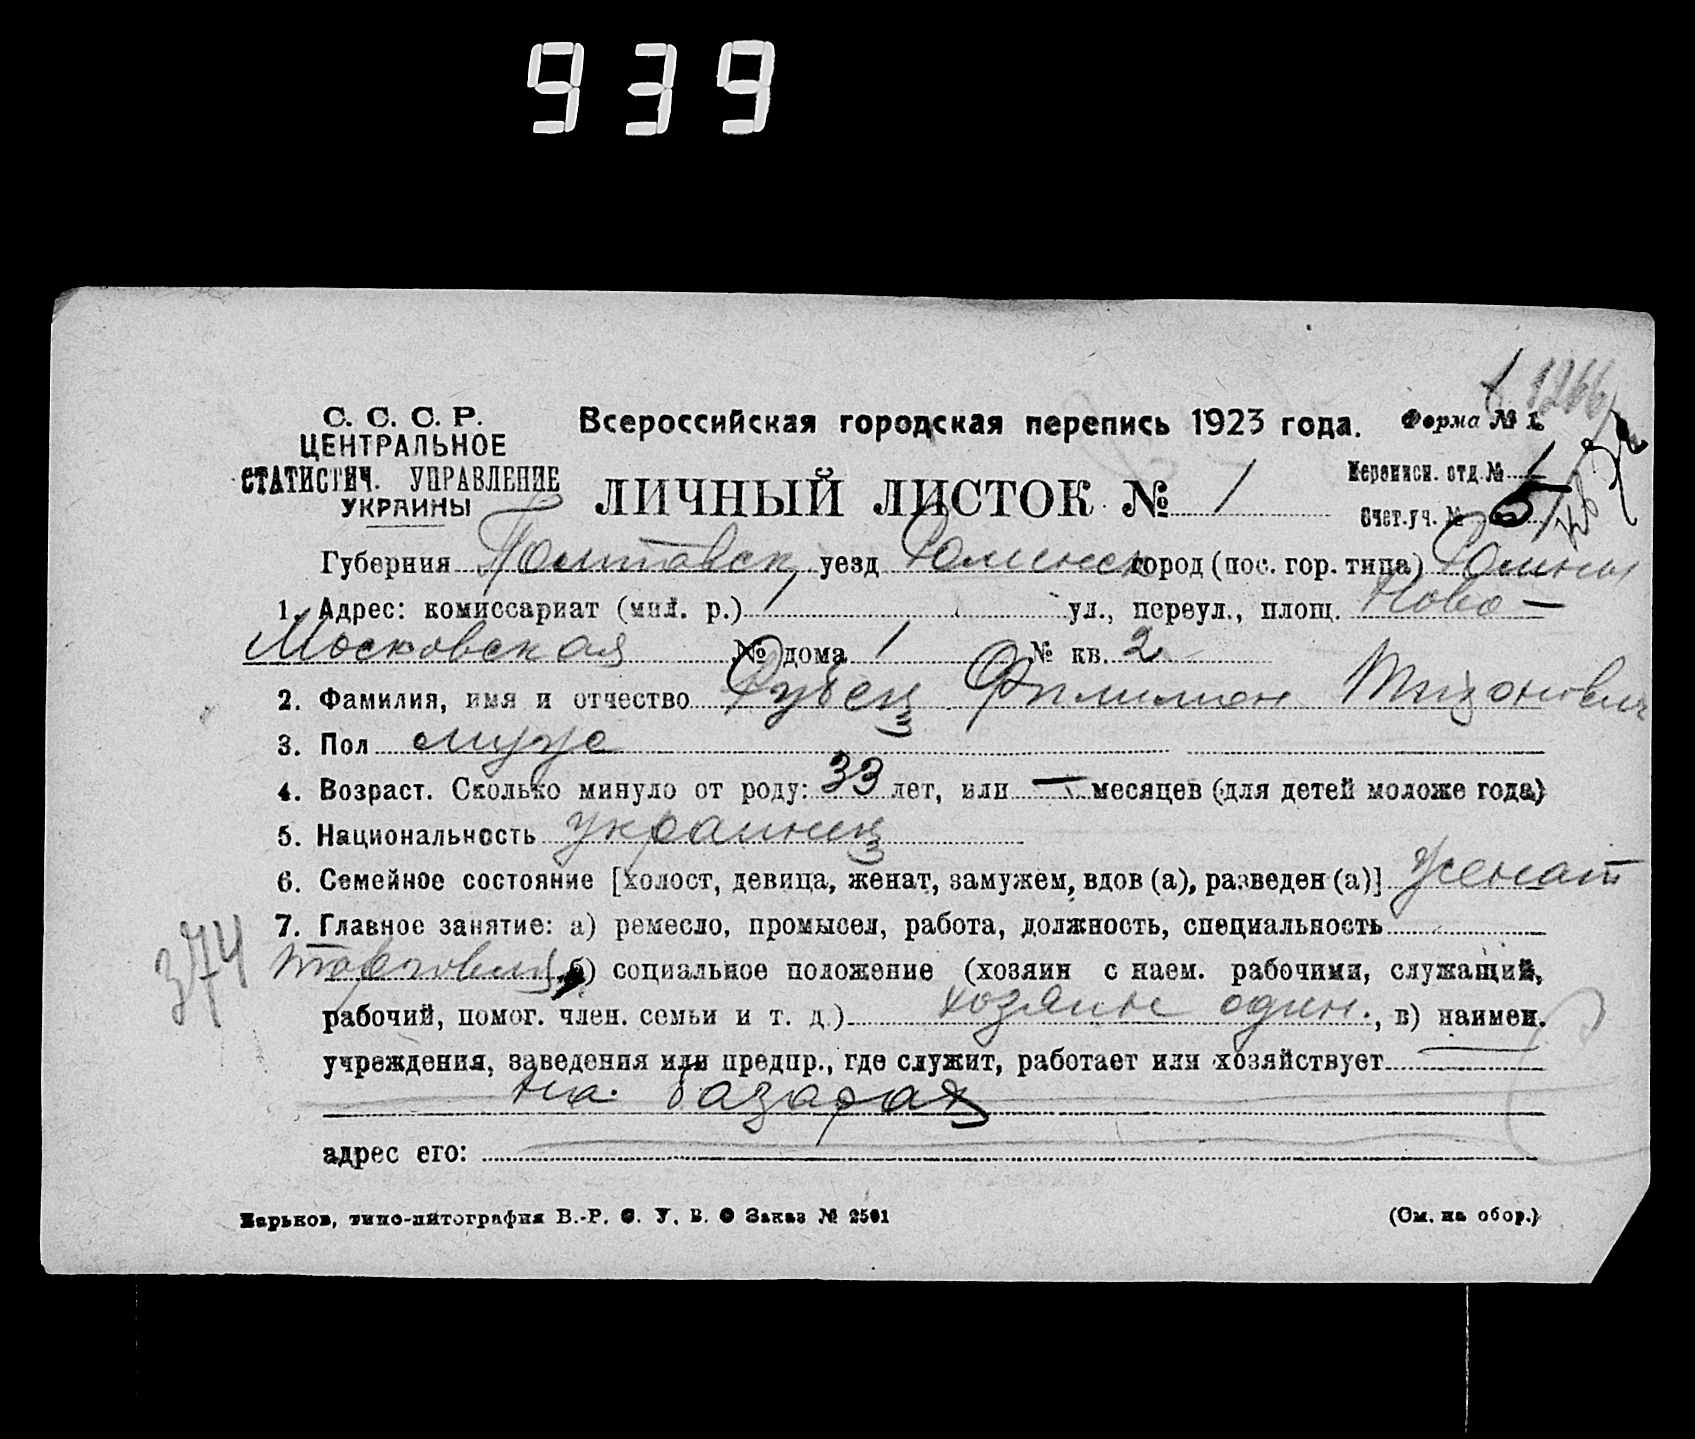 939
1266
С. С. С. Р.
ЦЕНТРАЛЬНОЕ
СТАТИСТИЧ. УПРАВЛЕНИЕ
УКРАИНЫ
Всероссийская городская перепись 1923 года.
Форма № 1.
ЛИЧНЫЙ ЛИСТОК № 1
Переписн. отд. № 1
Счет. уч. № 5
Губерния Полтавск, уезд Роменск город (пос. гор. типа) Ромны
1. Адрес: комиссариат (мил. р.) ул., переул., площ. Ново-
Московская № дома 1 № кв. 2
2. Фамилия, имя и отчество Рубец Филимон Тихонович
3. Пол муж
4. Возраст. Сколько минуло от роду: 33 лет, или — месяцев (для детей моложе года)
5. Национальность украинец
6. Семейное состояние [холост, девица, женат, замужем, вдов (а), разведен (а)] женат
7. Главное занятие: а) ремесло, промысел, работа, должность, специальность
374
торговец, б) социальное положение (хозяин с наем. рабочими, служащий,
рабочий, помог. член. семьи и т. д.) хозяин один., в) наимен.
учреждения, заведения или предпр., где служит, работает или хозяйствует
на базарах
адрес его:
Харьков, типо-литография В.-Р. С. У. В. О Заказ № 2501
(См. на обор.)